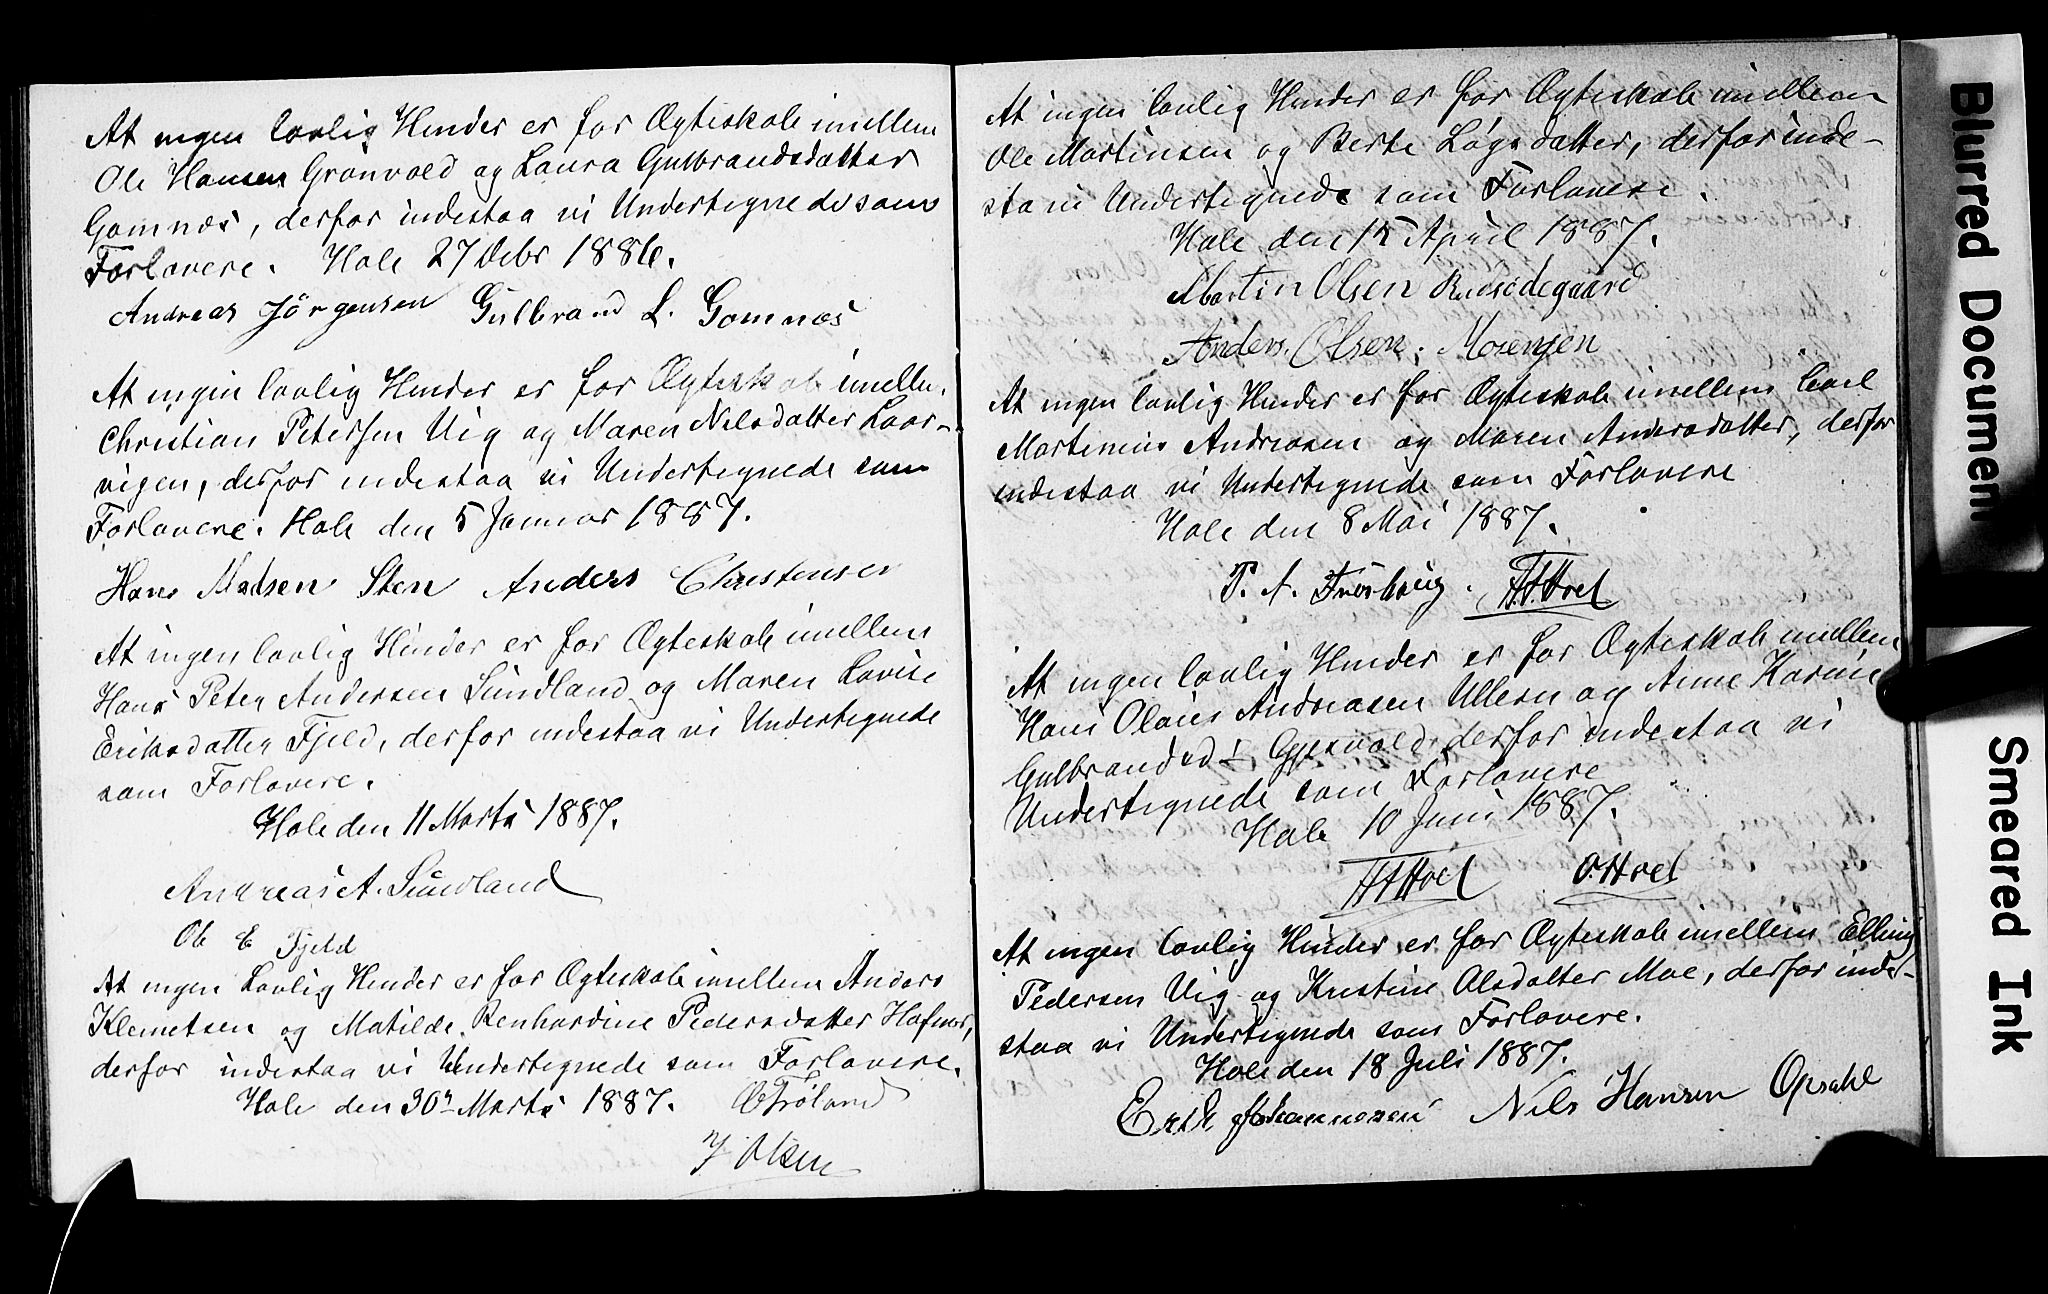 At ingen lovlig Hinder er for Ægteskab imellem
Ole Hansen Grønvold og Laura Gulbrandsdatter
Gomnæs, derfor indestaa vi Undertegnede som
Forlovere. Hole 27 Debr 1886.
Andreas Jörgensen Gulbrand L. Gomnæs
At ingen lovlig Hinder er for Ægteskab imellem
Christian Petersen Vig og Maren Nilsdatter Laar-
vigen, derfor indestaa vi Undertegnede som
Forlovere. Hole den 5 Januar 1887.
Hans Madsen Sten Anders Christensen
At ingen lovlig Hinder er for Ægteskab imellem
Hans Peter Andersen Sundland og Maren Lovise
Eriksdatter Fjeld, derfor indestaa vi Undertegnede
som Forlovere.
Hole den 11 Marts 1887.
Andreas A. Sundland
Ole E Fjeld
At ingen Lovlig Hinder er for Ægteskab imellem Anders
Klemetsen og Matilde Renhardine Pedersdatter Hafnor,
derfor indestaa vi Undertegnede som Forlovere.
Hole den 30 Marts 1887. O Frøland
J Olsen
At ingen lovlig Hinder er for Ægteskab imellem
Ole Martinsen og Berte Løgsdatter, derfor inde-
sta vi Undertegnede som Forlovere.
Hole den 12 April 1887.
Martin Olsen Rudsødegaard
Anders. Olsen. Mosengen
At ingen lovlig Hinder er for Ægteskab imellem Carl
Martinius Andreasen og Maren Andersdatter, derfor
indestaa vi Undertegnede som Forlovere
Hole den 8 Mai 1887.
P. A. Frøshaug. H. H. Hoel
At ingen lovlig Hinder er for Ægteskab imellem
Hans Olaus Andreasen Ullern og Anne Karine
Gulbrandsd⸗ Gjesvold, derfor indestaa vi
Undertegnede som Forlovere
Hole 10 Juni 1887.
H H Hoel O. Hoel
At ingen lovlig Hinder er for Ægteskab imellem Elling
Pedersen Vig og Kristine Olsdatter Moe, derfor inde-
staa vi Undertegnede som Forlovere.
Hole den 18 Juli 1887.
Erik Johannesen Nils Hansen Opsahl
Blurred Document
Smeared Ink